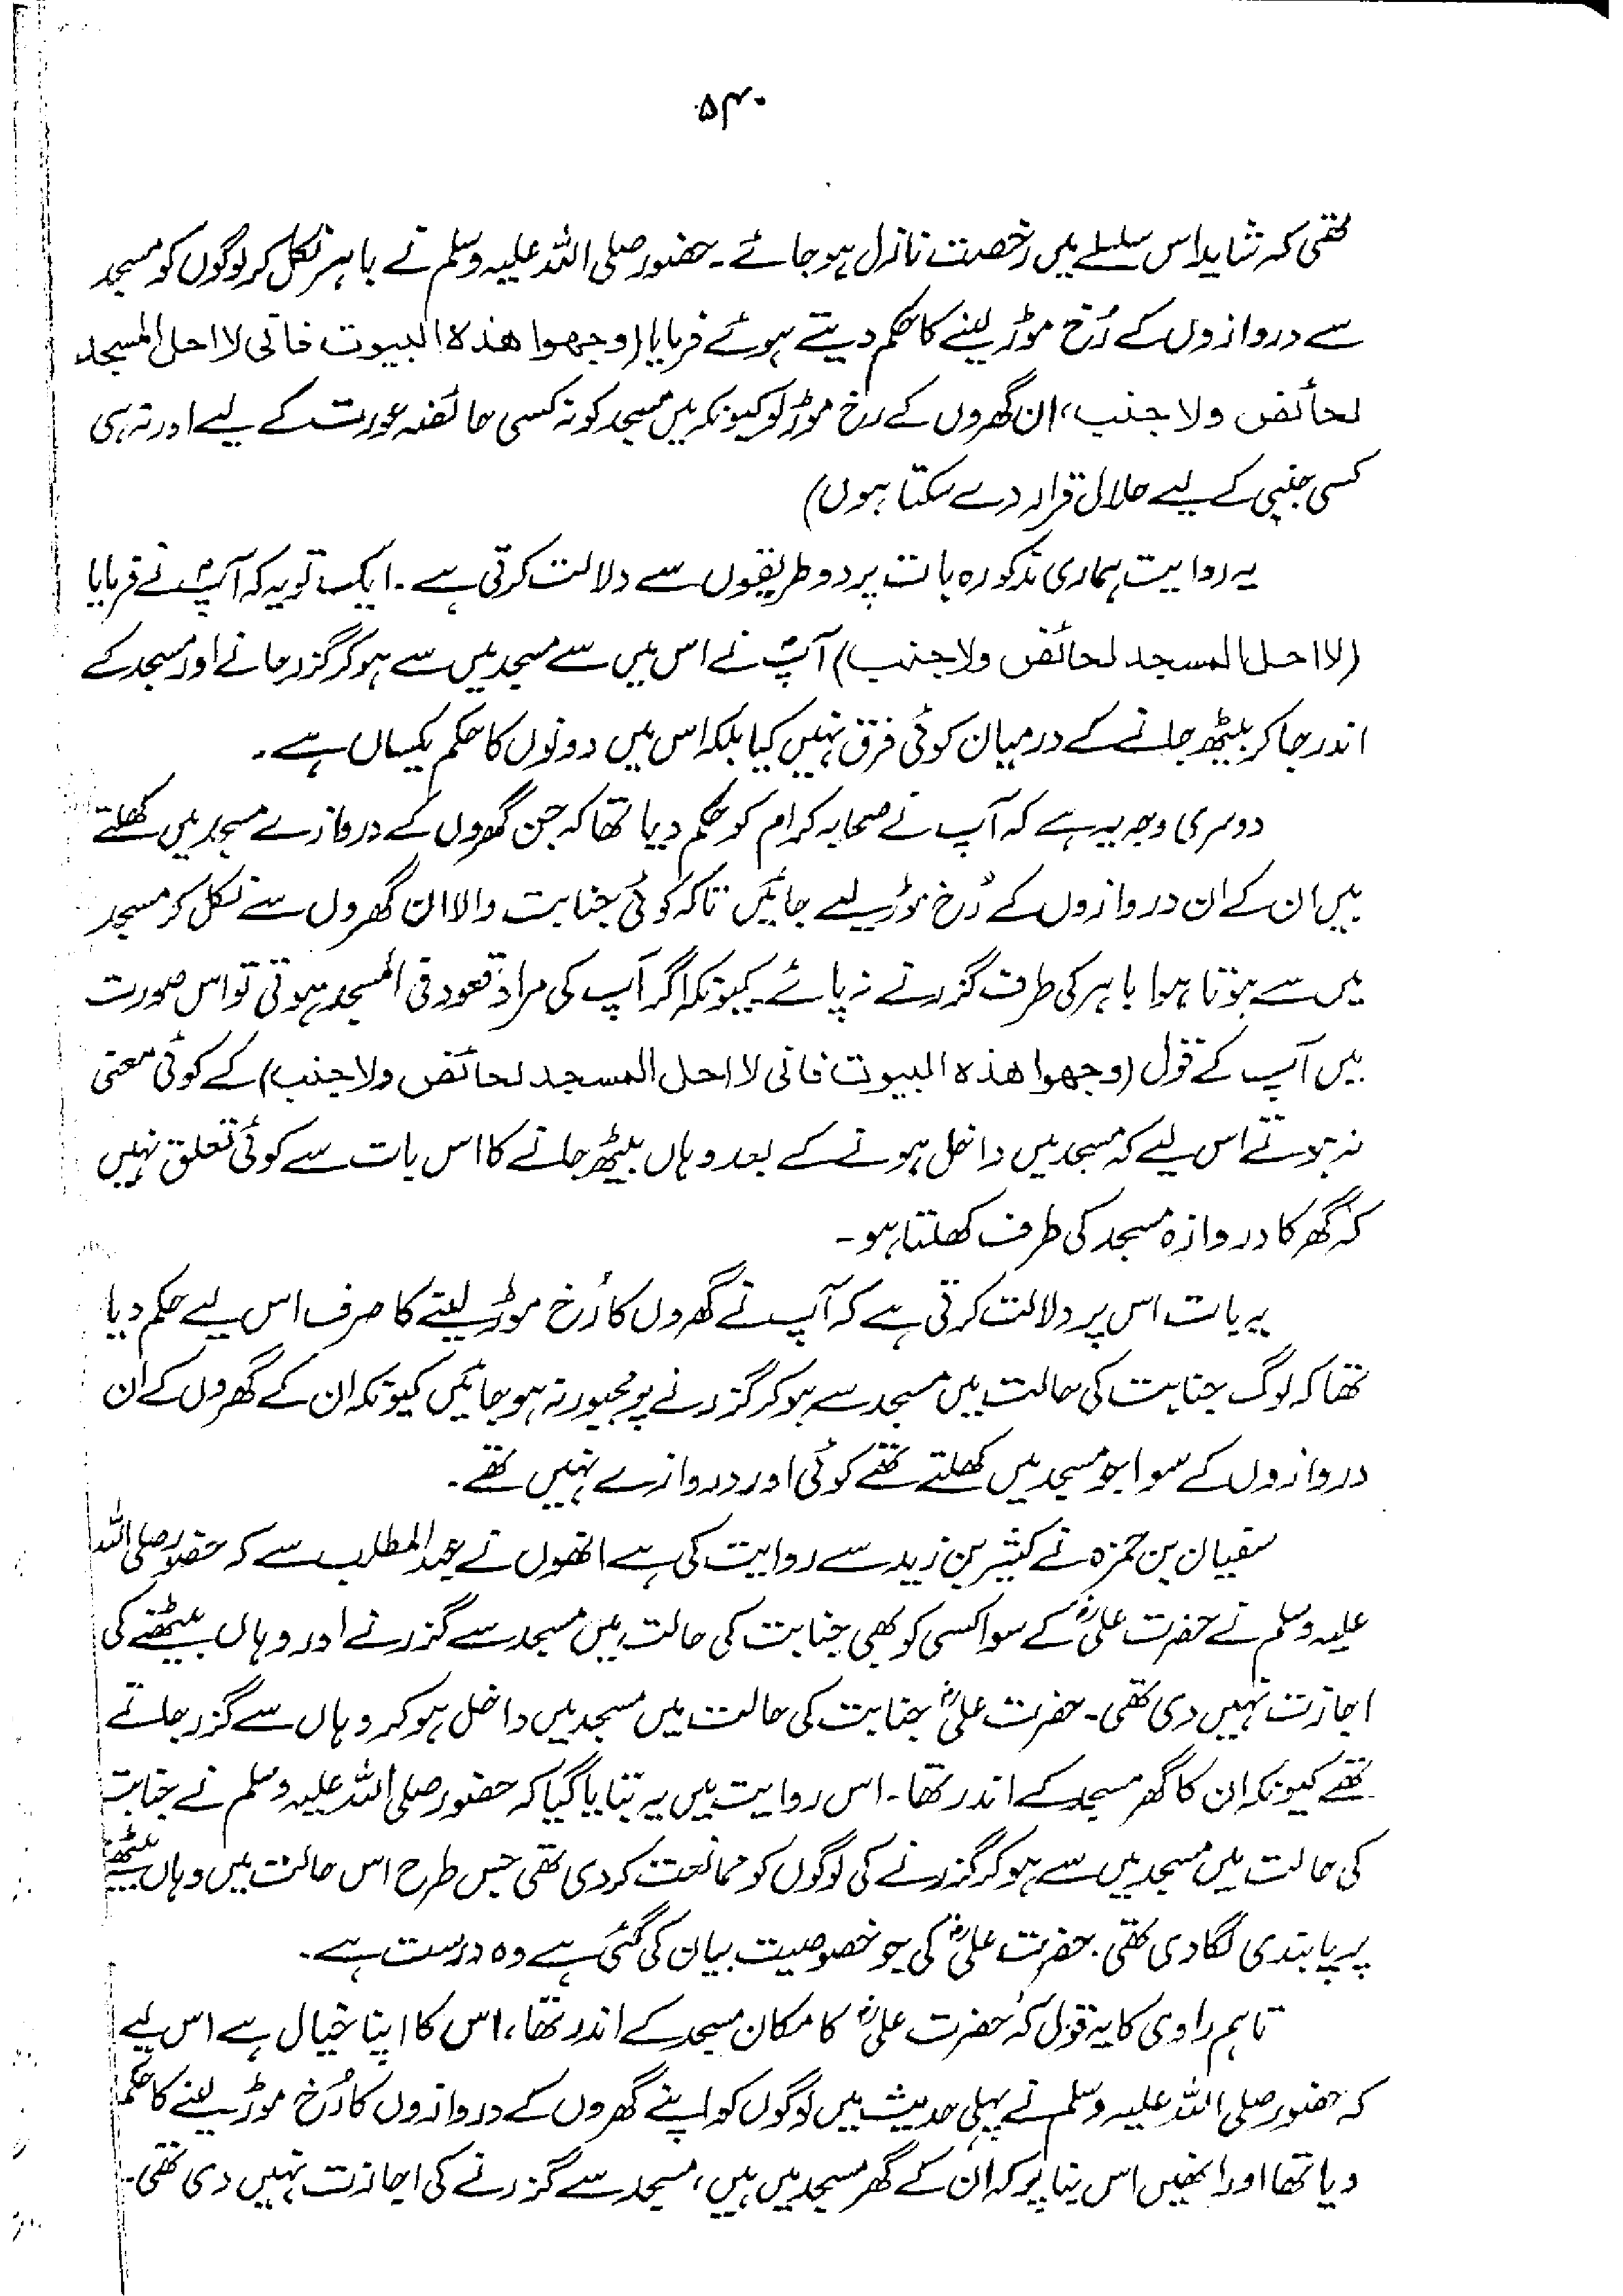 ۵۴۰
تھی کہ شاید اس سلسلے میں رخصت نازل ہو جائے۔ حضور صلی اللہ علیہ وسلم نے باہر نکل کر لوگوں کو مسجد
سے دروازوں کے رُخ موڑ لینے کا حکم دیتے ہوئے فرمایا (وجھوا ھذہ البیوت فانی لا احل المسجد
لحائض ولا جنب، ان گھروں کے رخ موڑ لو کیونکہ میں مسجد کو نہ کسی حائضہ عورت کے لیے اور نہ ہی
کسی جنبی کے لیے حلال قرار دے سکتا ہوں)
یہ روایت ہماری مذکورہ بات پر دو طریقوں سے دلالت کرتی ہے۔ ایک تو یہ کہ آپؐ نے فرمایا
(لا احل المسجد لحائض ولا جنب) آپؐ نے اس میں سے مسجد میں سے ہو کر گزر جانے اور مسجد کے
اندر جا کر بیٹھ جانے کے درمیان کوئی فرق نہیں کیا بلکہ اس میں دونوں کا حکم یکساں ہے۔
دوسری وجہ یہ ہے کہ آپ نے صحابہ کرام کو حکم دیا تھا کہ جن گھروں کے دروازے مسجد میں کھلتے
ہیں ان کے ان دروازوں کے رُخ موڑ لیے جائیں تاکہ کوئی جنابت والا ان گھروں سے نکل کر مسجد
میں سے ہوتا ہوا باہر کی طرف گزرنے نہ پائے۔ کیونکہ اگر آپ کی مراد قعود فی المسجد ہوتی تو اس صورت
میں آپ کے قول (وجھوا ھذہ البیوت فانی لا احل المسجد لحائض ولا جنب) کے کوئی معنی
نہ ہوتے اس لیے کہ مسجد میں داخل ہونے کے بعد وہاں بیٹھ جانے کا اس بات سے کوئی تعلق نہیں
کہ گھر کا دروازہ مسجد کی طرف کھلتا ہو۔
یہ بات اس پر دلالت کرتی ہے کہ آپ نے گھروں کا رُخ موڑ لینے کا صرف اس لیے حکم دیا
تھا کہ لوگ جنابت کی حالت میں مسجد سے ہو کر گزرنے پر مجبور نہ ہو جائیں کیونکہ ان کے گھروں کے ان
دروازوں کے سوا جو مسجد میں کھلتے تھے کوئی اور دروازے نہیں تھے۔
سفیان بن حمزہ نے کثیر بن زید سے روایت کی ہے انھوں نے عبدالمطلب سے کہ حضور صلی اللہ
علیہ وسلم نے حضرت علیؓ کے سوا کسی کو بھی جنابت کی حالت میں مسجد سے گزرنے اور وہاں بیٹھنے کی
اجازت نہیں دی تھی۔ حضرت علیؓ جنابت کی حالت میں مسجد میں داخل ہو کر وہاں سے گزر جاتے
تھے کیونکہ ان کا گھر مسجد کے اندر تھا۔ اس روایت میں یہ بتایا گیا کہ حضور صلی اللہ علیہ وسلم نے جنابت
کی حالت میں مسجد میں سے ہو کر گزرنے کی لوگوں کو ممانعت کر دی تھی جس طرح اس حالت میں وہاں بیٹھنے
پر پابندی لگا دی تھی۔ حضرت علیؓ کی جو خصوصیت بیان کی گئی ہے وہ درست ہے۔
تاہم راوی کا یہ قول کہ حضرت علیؓ کا مکان مسجد کے اندر تھا، اس کا اپنا خیال ہے اس لیے
کہ حضور صلی اللہ علیہ وسلم نے پہلی حدیث میں لوگوں کو اپنے گھروں کے دروازوں کا رُخ موڑ لینے کا حکم
دیا تھا اور انھیں اس بنا پر کہ ان کے گھر مسجد میں ہیں، مسجد سے گزرنے کی اجازت نہیں دی تھی۔